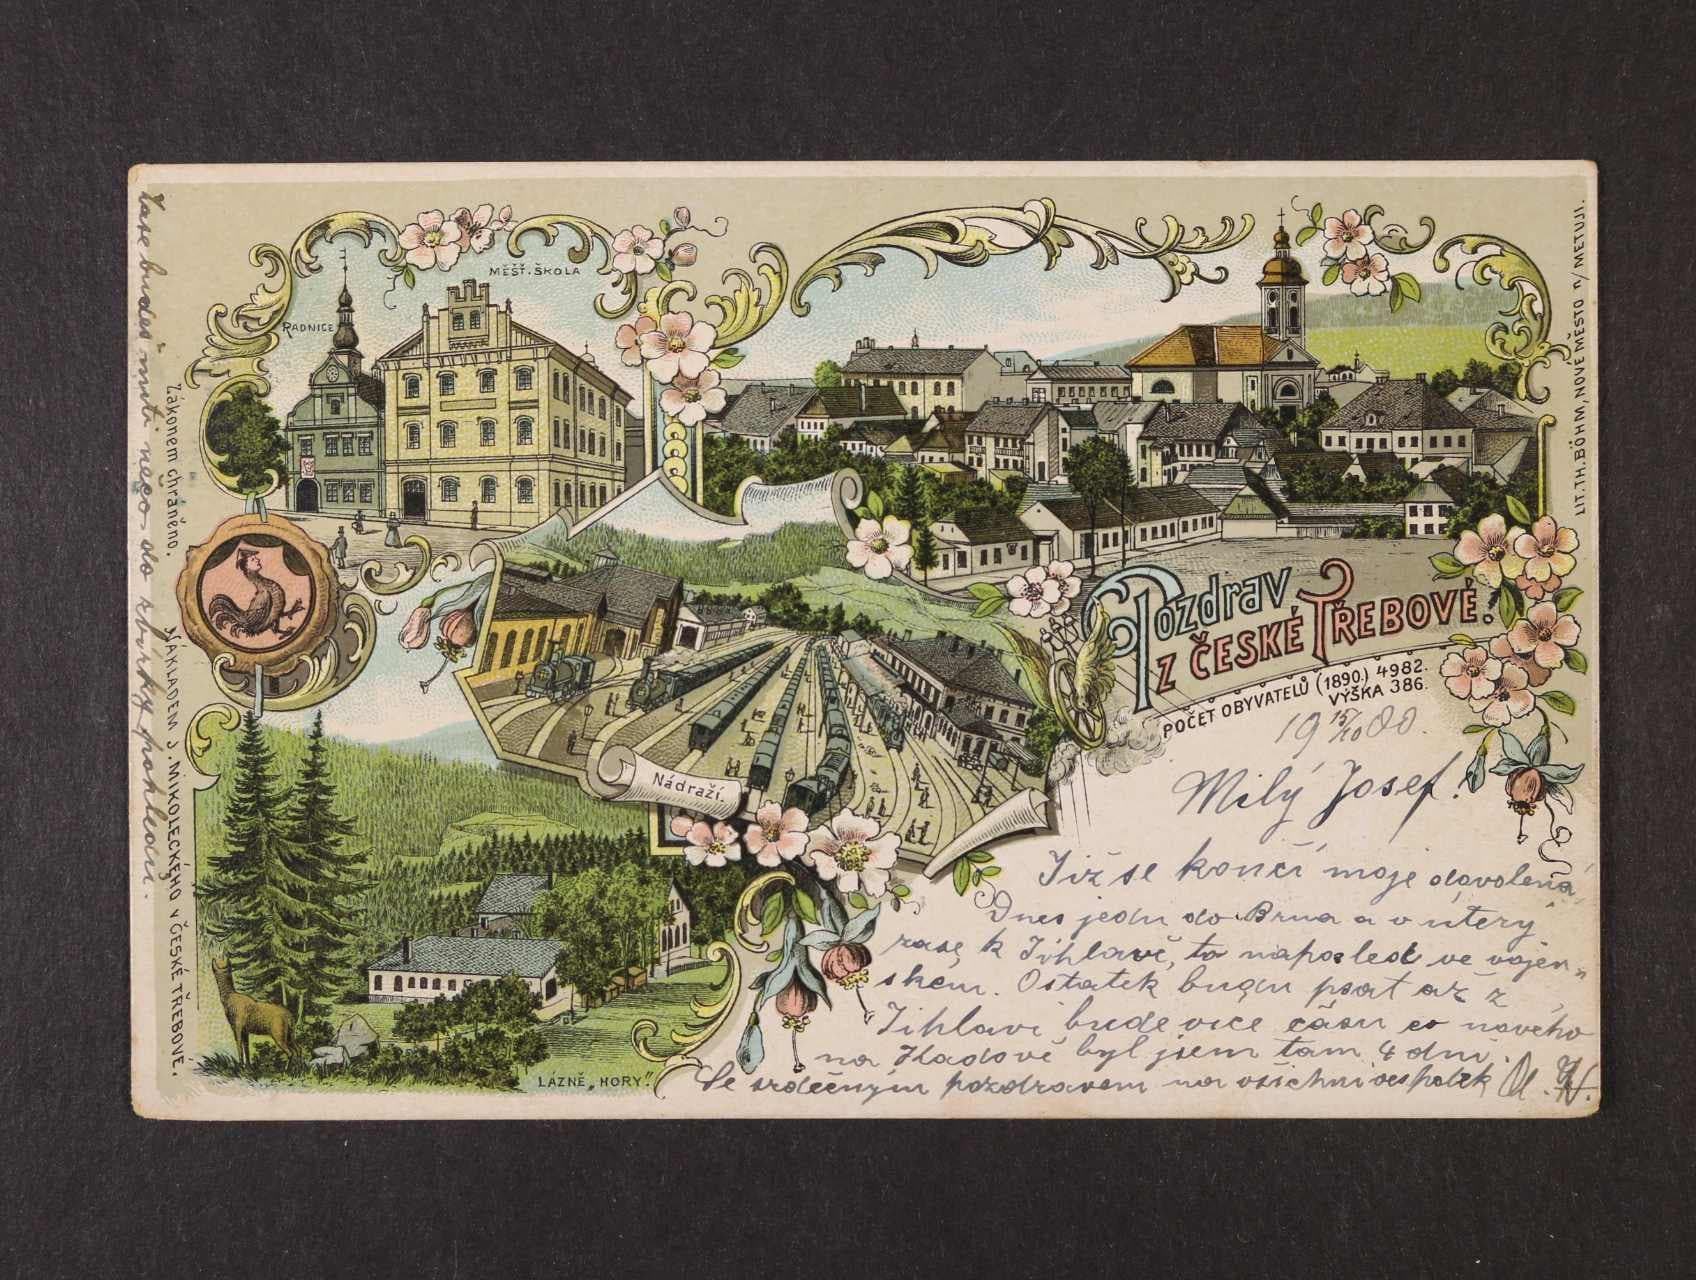 Zase budeš míti něco do sbírky pohledů.
Zákonem chráněno.
NÁKLADEM J. MIKOLECKÉHO V ČESKÉ TŘEBOVÉ.
RADNICE
MĚŠŤ. ŠKOLA
LIT. TH. BÖHM, NOVÉ MĚSTO n/METUJI.
Pozdrav
z ČESKÉ TŘEBOVÉ.
POČET OBYVATELŮ (1890.) 4982.
VÝŠKA 386.
Nádraží.
LÁZNĚ „HORY".
19 15/10 00.
Milý Josef!
Již se končí moje dovolená
Dnes jedu do Brna a v úterý
zase k Jihlavě, to naposled ve vojen„
ském. Ostatek budu psat až z
Jihlavi bude více času co nového
na Hadově byl jsem tam 4 dni.
Se srdečným pozdravem na všichni vespolek